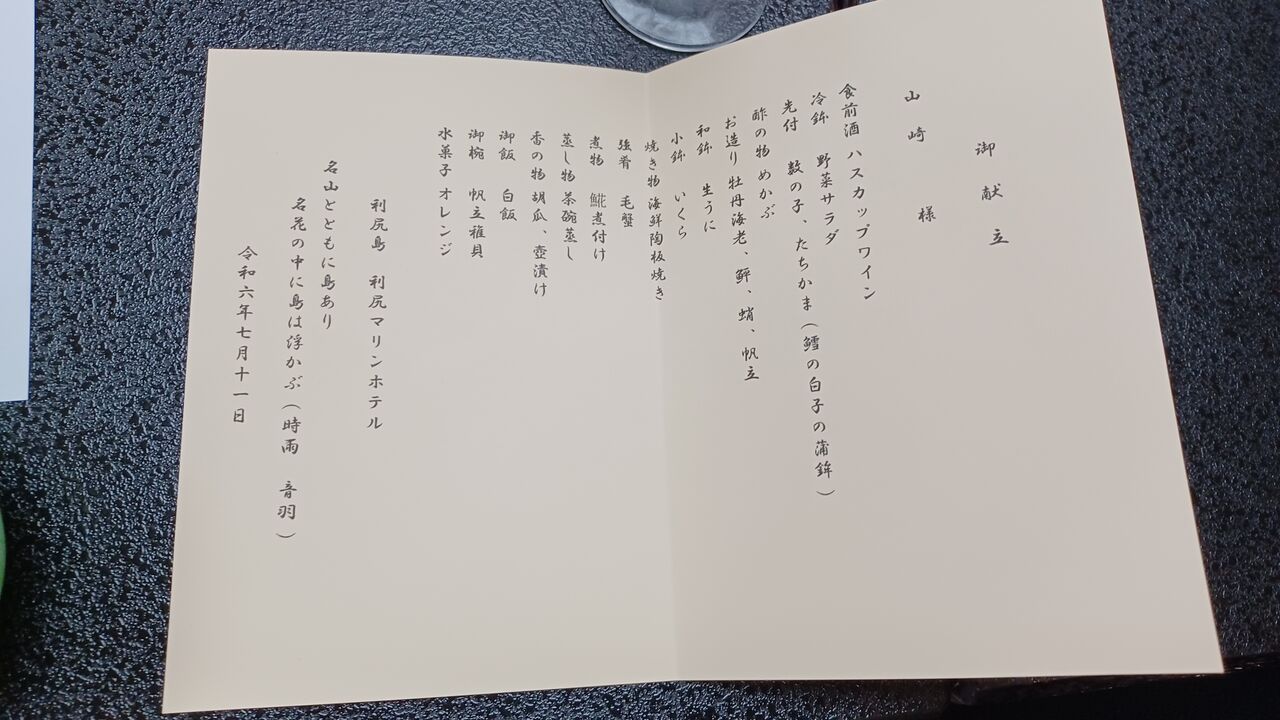 御献立
山崎 様
食前酒 ハスカップワイン
冷鉢 野菜サラダ
先付 数の子、たちかま(鱈の白子の蒲鉾)
酢の物 めかぶ
お造り 牡丹海老、鮃、蛸、帆立
和鉢 生うに
小鉢 いくら
焼き物 海鮮陶板焼き
強肴 毛蟹
煮物 𩸽煮付け
蒸し物 茶碗蒸し
香の物 胡瓜、壺漬け
御飯 白飯
御椀 帆立稚貝
水菓子 オレンジ
利尻島 利尻マリンホテル
名山とともに島あり
名花の中に島は浮かぶ(時雨 音羽)
令和六年七月十一日